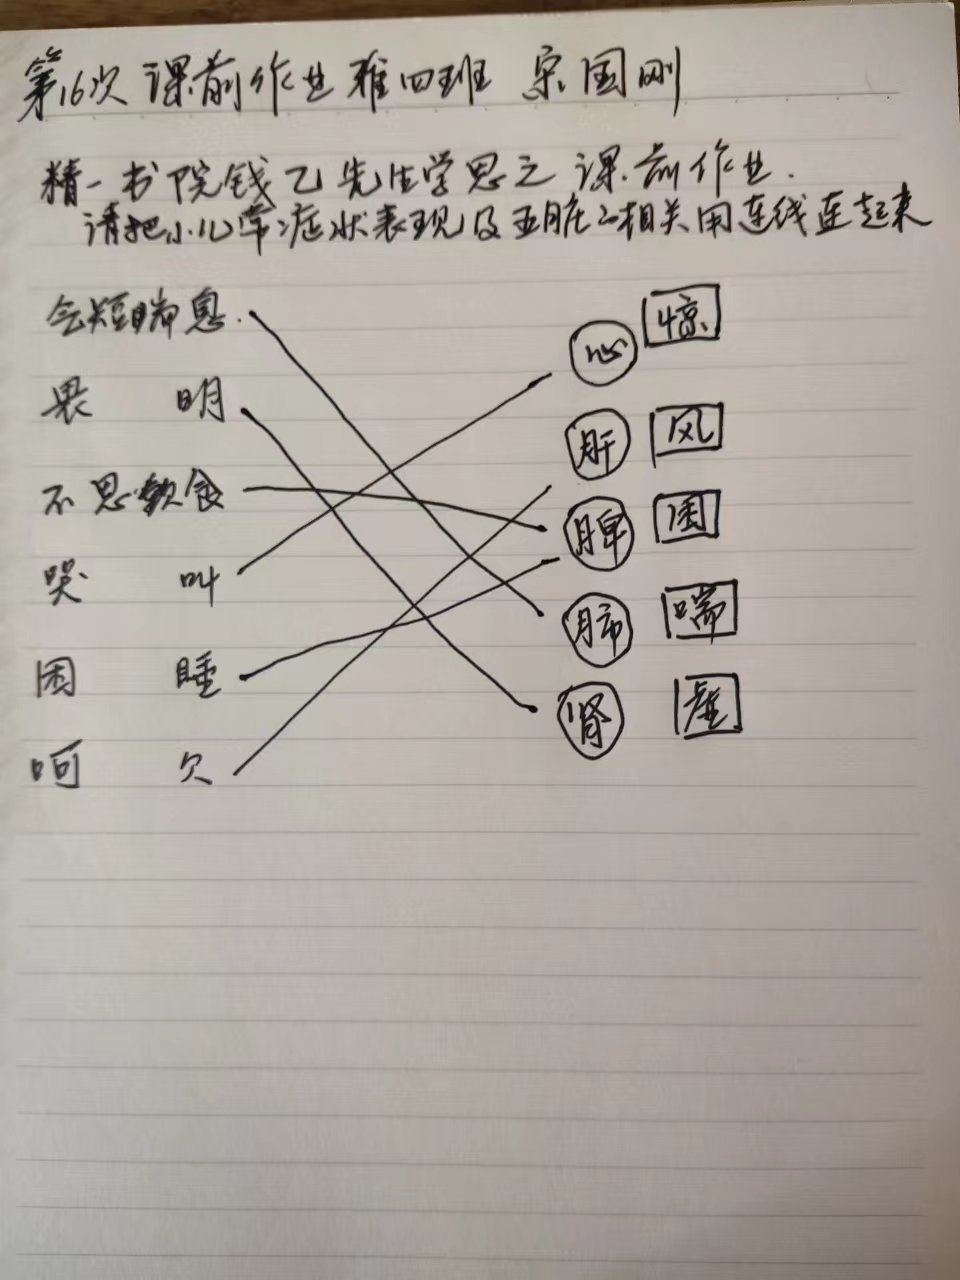 第16次 课前作业 雅四班 宋国刚
精一书院钱乙先生学思之课前作业.
请把小儿常症状表现及五脏之相关用连线连起来
气短喘息.
畏 明
不思飲食
哭 叫
困 睡
呵 欠
心 惊
肝 风
脾 困
肺 喘
肾 虚